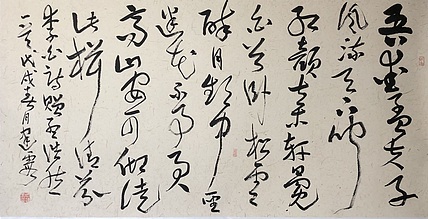 吾愛孟夫子
風流天下聞
紅顏棄軒冕
白首卧松雲
醉月頻中聖
迷花不事君
高山安可仰徒
此揖清芬
李白詩贈孟浩然
戊戌春月